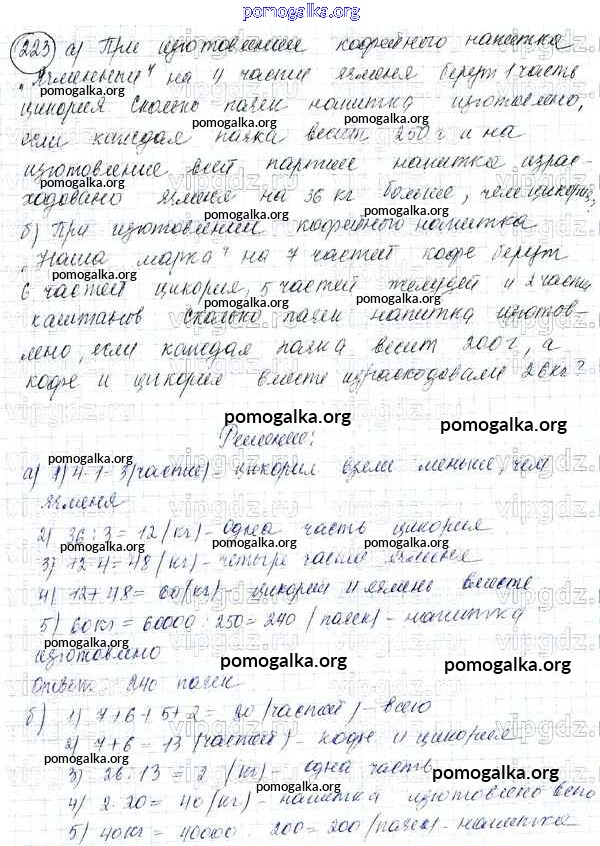 pomogalka.org
223 а) При изготовлении кофейного напитка
"Ячменный" на 4 части ячменя берут 1 часть
цикория Сколько пачек напитка изготовлено,
pomogalka.org pomogalka.org
если каждая пачка весит 250 г и на
изготовление всей партии напитка израс-
pomogalka.org pomogalka.org
ходовано ячменя на 36 кг больше, чем цикория?
б) При изготовлении кофейного напитка
pomogalka.org
"Наша марка" на 7 частей кофе берут
6 частей цикория, 5 частей желудей и 2 части
pomogalka.org pomogalka.org
каштанов Сколько пачек напитка изготов-
лено, если каждая пачка весит 200 г, а
кофе и цикория вместе израсходовали 26 кг?
pomogalka.org pomogalka.org
Решение:
а) 1) 4-1=3 (части) - цикория взяли меньше, чем
ячменя
pomogalka.org
2) 36:3=12 (кг) - одна часть цикория
pomogalka.org pomogalka.org
3) 12·4=48 (кг) - четыре части ячменя
4) 12+48=60 (кг) - цикория и ячмень вместе
pomogalka.org
5) 60 кг = 60000 : 250 = 240 (пачек) - напитка
pomogalka.org
изготовлено
pomogalka.org pomogalka.org
Ответ: 240 пачек
б) 1) 7+6+5+2=20 (частей) - всего
pomogalka.org
2) 7+6=13 (частей) - кофе и цикория
pomogalka.org
3) 26:13=2 (кг) - одна часть
pomogalka.org
4) 2·20=40 (кг) - напитка изготовлено всего
pomogalka.org
5) 40 кг = 40000 : 200 = 200 (пачек) - напитка
pomogalka.org